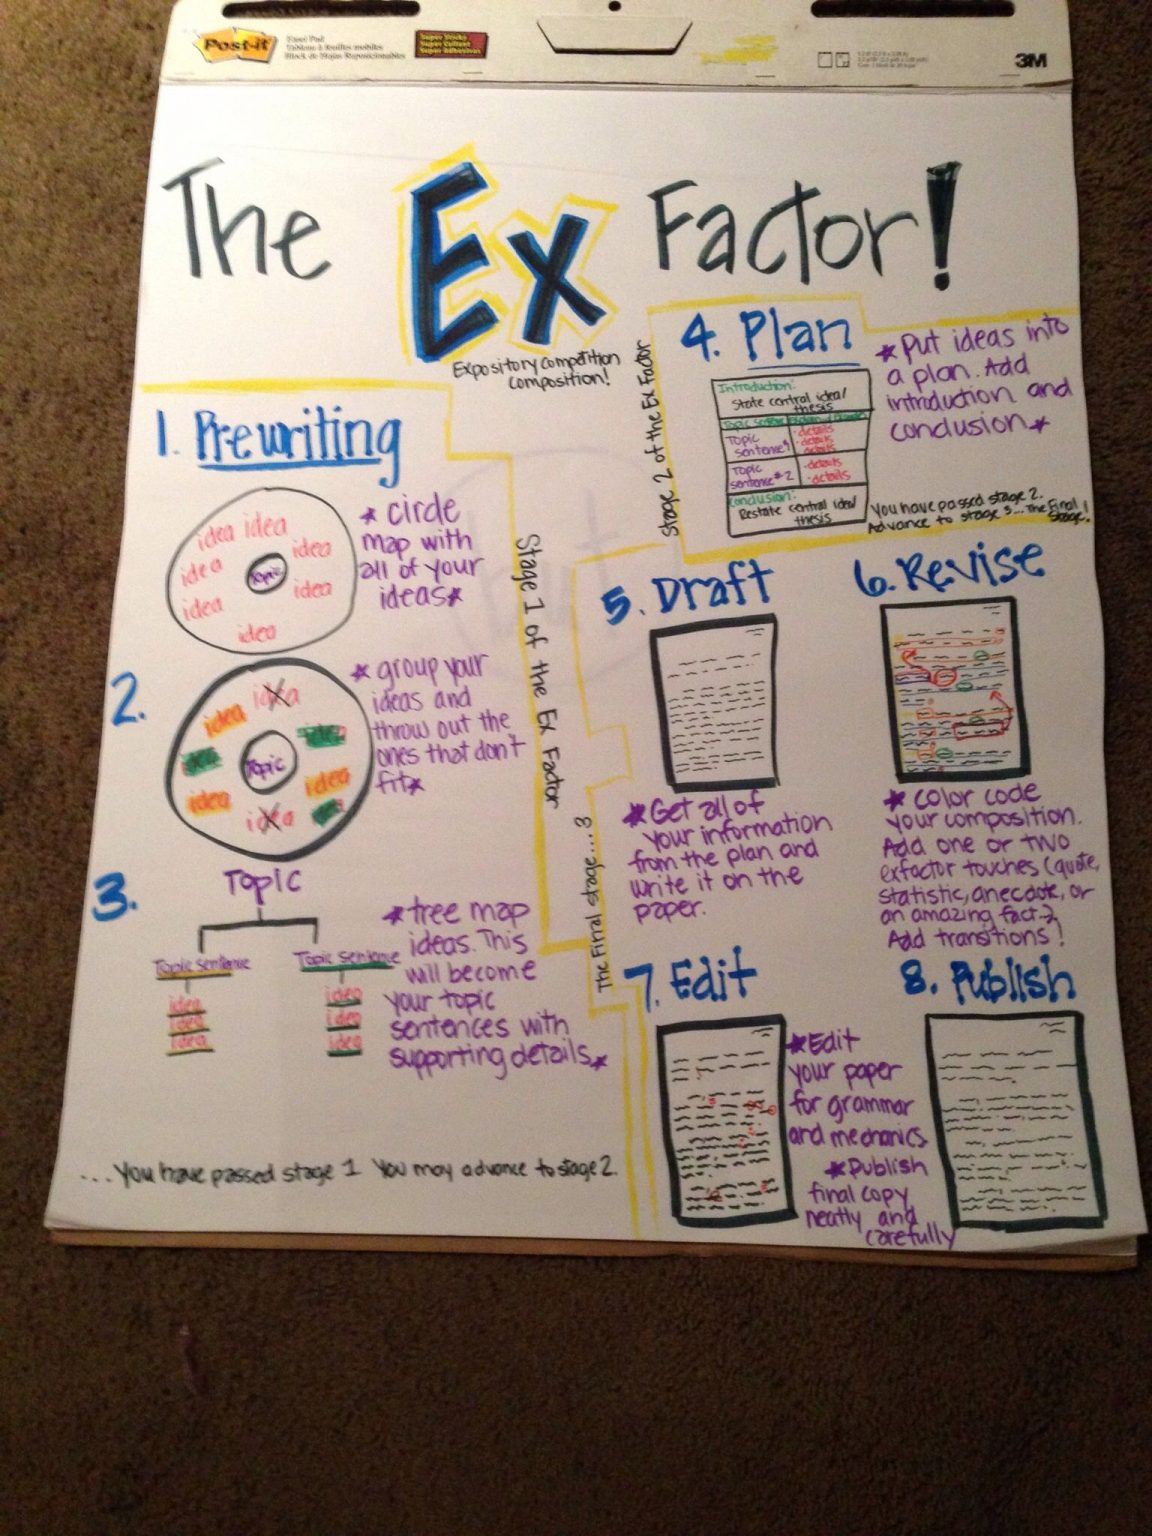 Post-it
Easel Pad
Tableau à feuilles mobiles
Block de Hojas Reposicionables
Super Sticky
3M
The Ex Factor!
Expository competition
composition!
1. Prewriting
idea idea
idea
idea
idea
idea
idea
Topic
* circle
map with
all of your
ideas*
2.
idea
idea
idea
idea
idea
idea
Topic
* group your
ideas and
throw out the
ones that don't
fit*
3.
Topic
Topic sentence
Topic sentence
idea
idea
idea
idea
idea
idea
* tree map
ideas. This
will become
your topic
sentences with
supporting details*
...You have passed stage 1 You may advance to stage 2.
Stage 1 of the Ex Factor
Stage 2 of the Ex Factor
4. Plan
Introduction:
State central idea/
thesis
Topic sentence
Topic
sentence #1
•details
•details
details
Topic
sentence #2
•details
•details
Conclusion:
Restate central idea/
thesis
* Put ideas into
a plan. Add
introduction and
conclusion*
You have passed stage 2.
Advance to stage 3...The Final
Stage!
The Final stage...3
5. Draft
* Get all of
your information
from the plan and
write it on the
paper.
6. Revise
* color code
your composition.
Add one or two
exfactor touches (quote,
statistic, anecdote, or
an amazing fact.)
Add transitions!
7. Edit
* Edit
your paper
for grammar
and mechanics
8. Publish
* Publish
final copy
neatly and
carefully